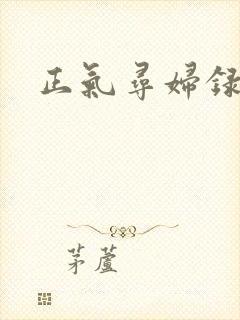 正氣尋婦録
茅蘆